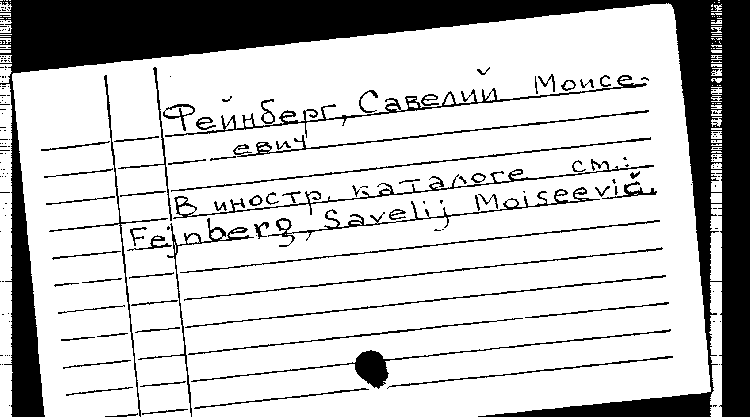 Фейнберг, Савелий Моисе-
евич
В иностр. каталоге см.:
Fejnberg, Savelij Moiseevič.